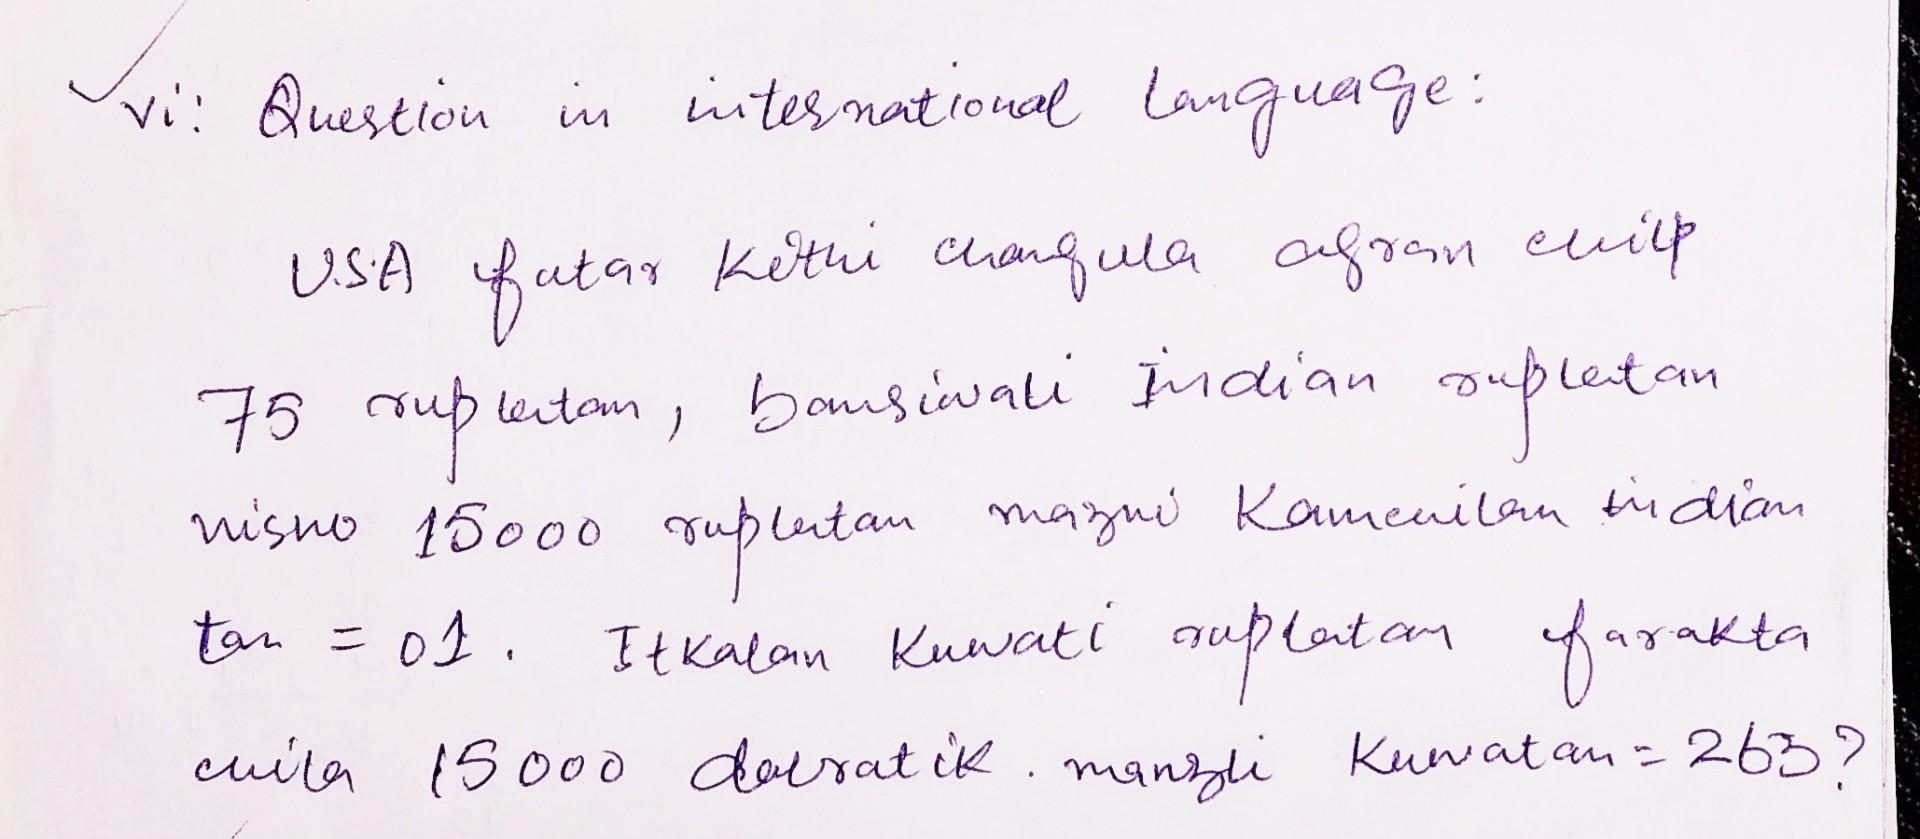 vi: Question in international language:
U.S.A futar Kethi changula agran chilp
75 rupletan, bansiwali Indian rupletan
nisno 15000 rupletan mazni Kamenilan indian
tan = 01. Itkalan Kuwati rupletan farakta
chila 15000 dolratik. manzli Kuwatan = 263?